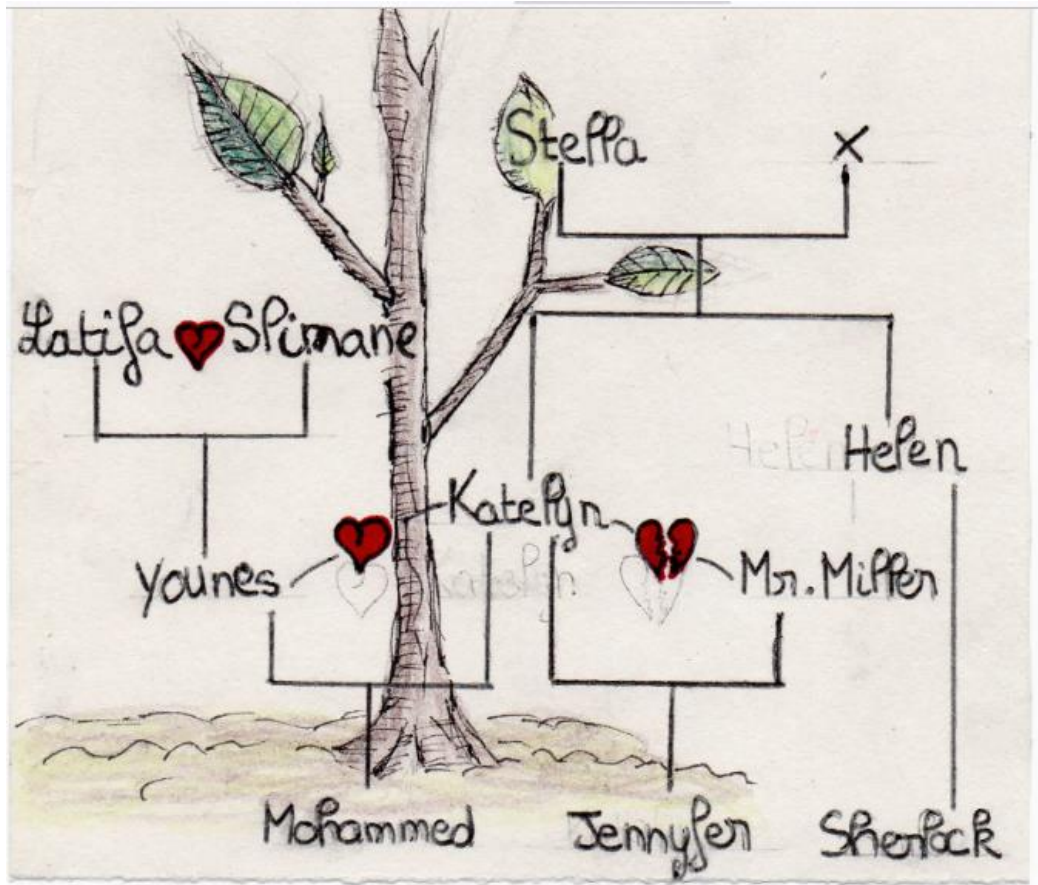 Stella X
Latifa Slimane
Helen
Katelyn
Younes Mr. Miller
Mohammed Jennyfer Sherlock